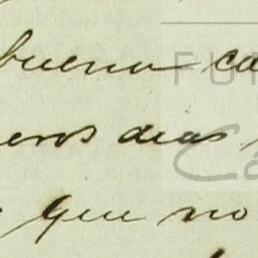 buena ca
FU
eros dias
Ca
que no